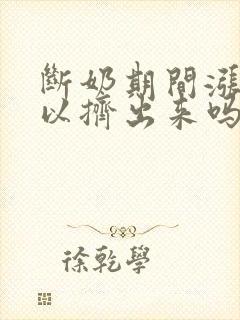 斷奶期間漲
以擠出來嗎
徐乾學